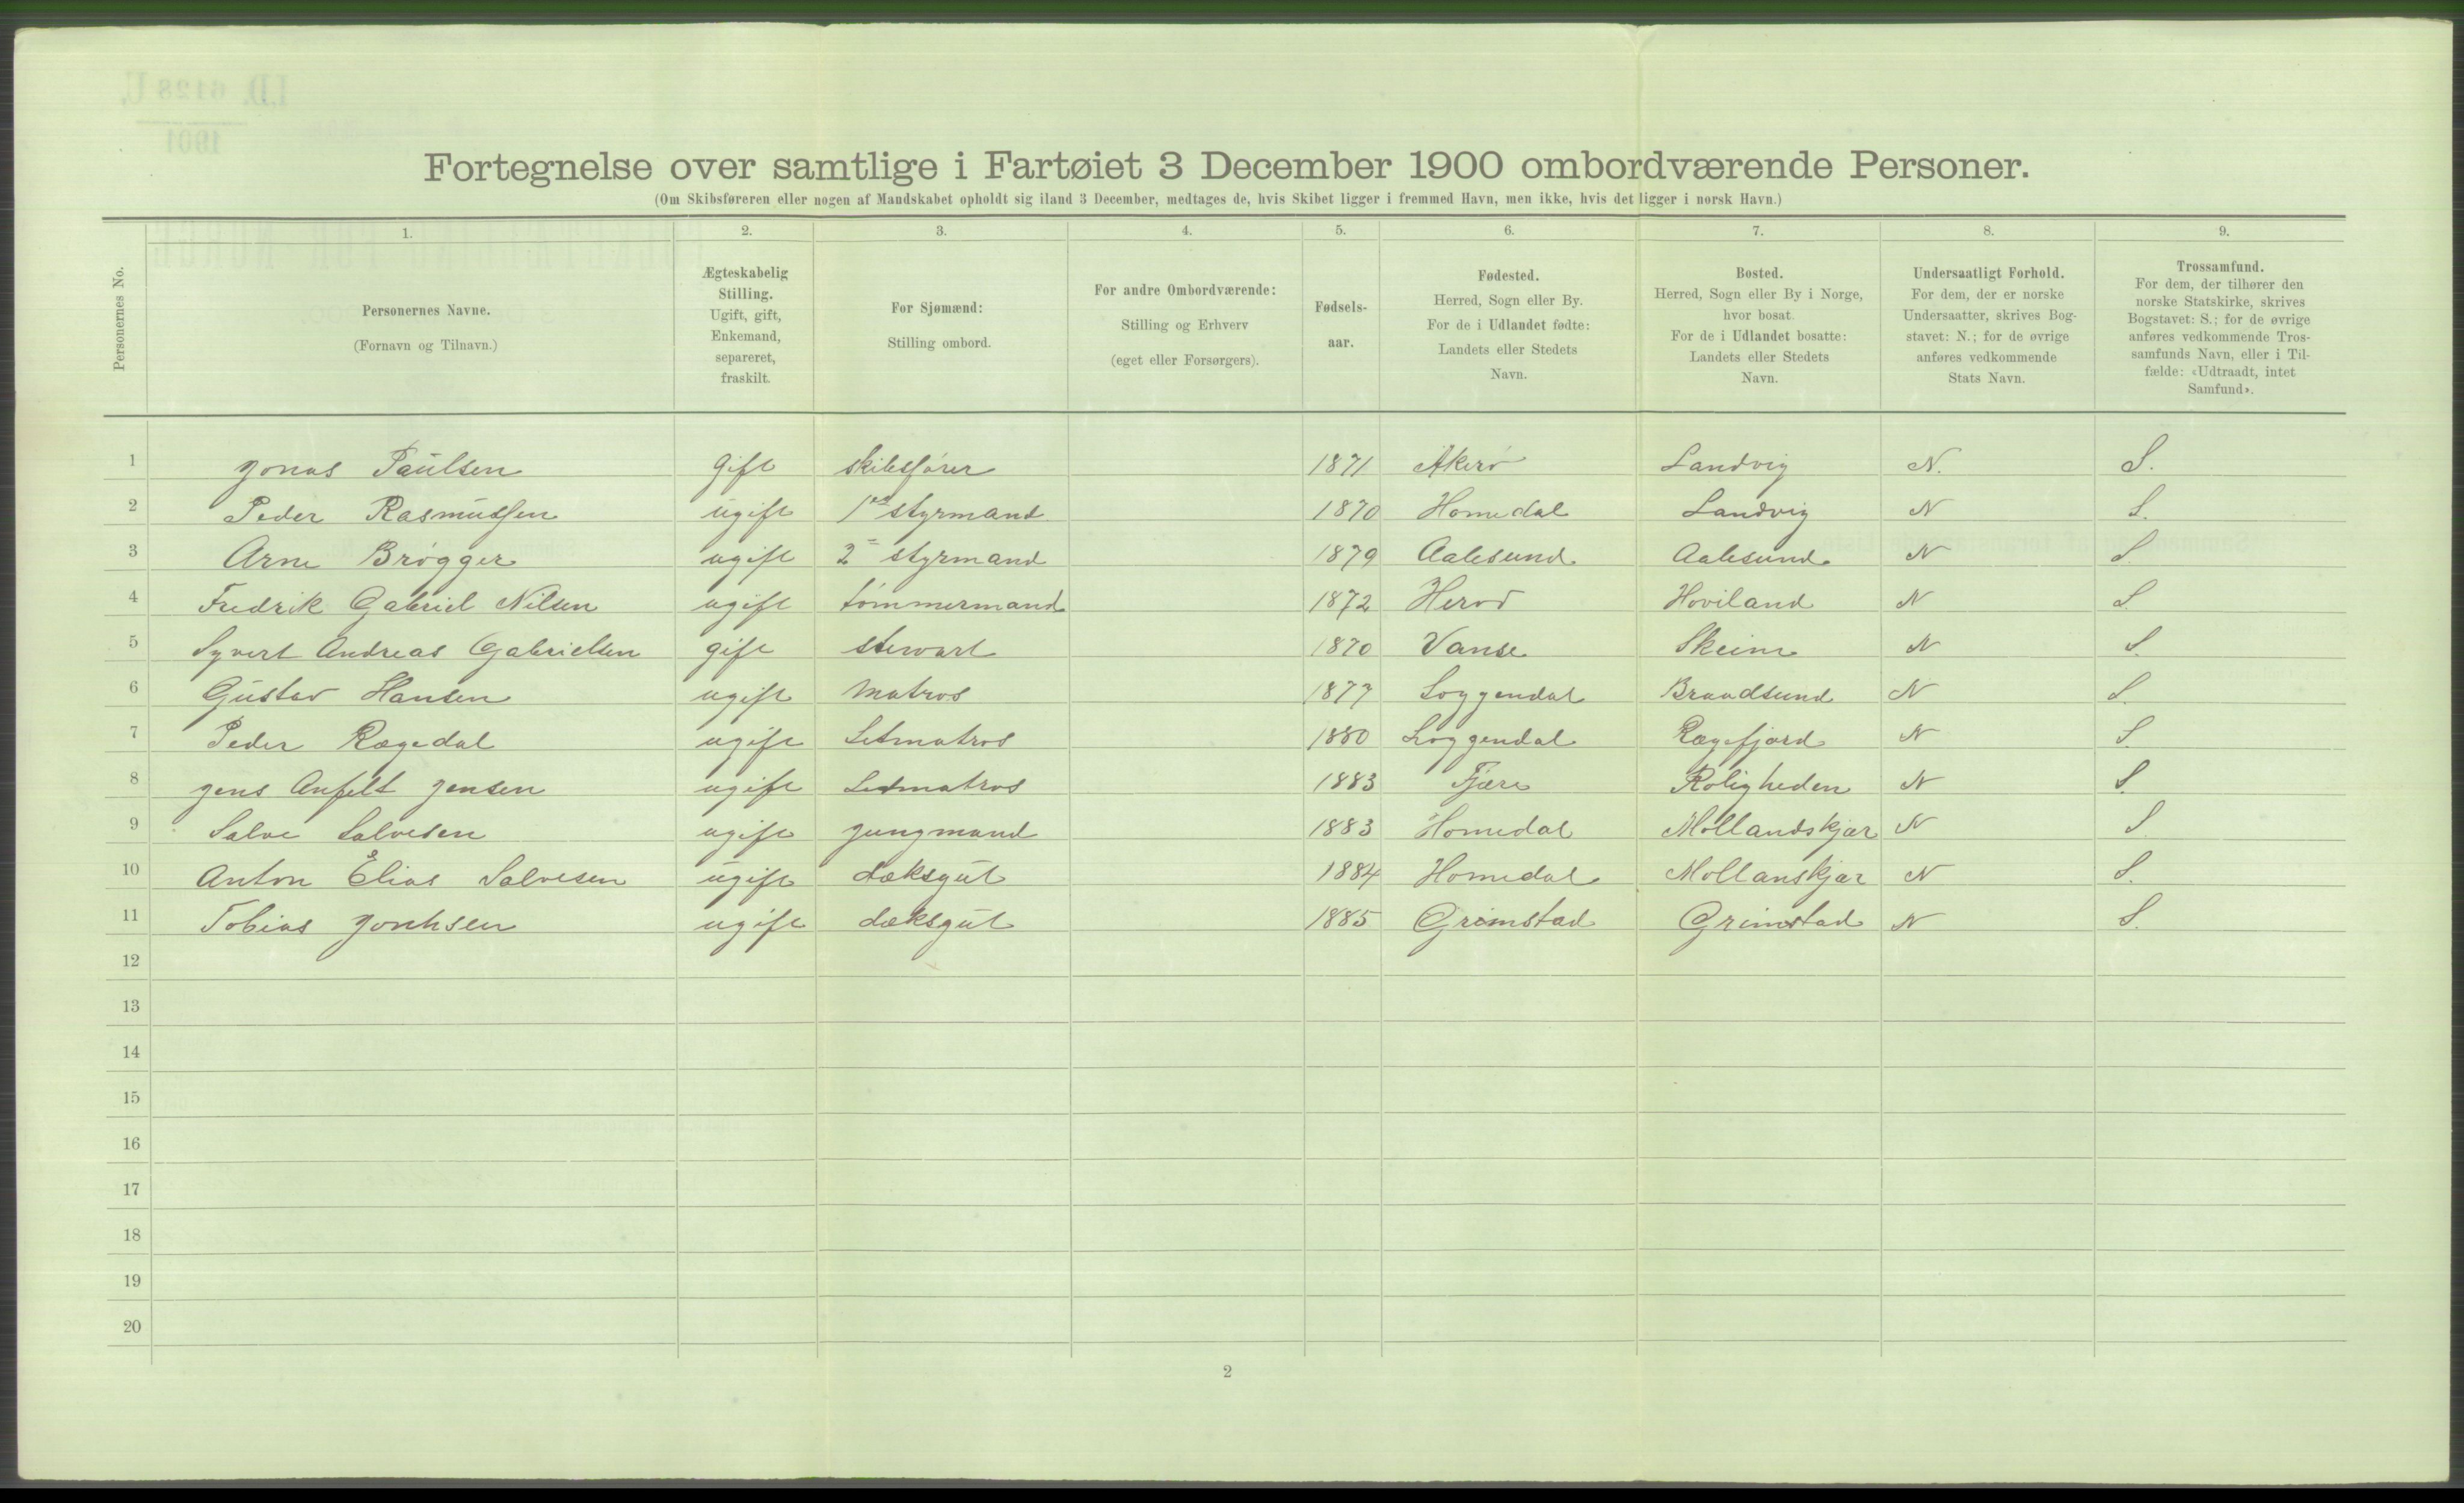 Fortegnelse over samtlige i Fartøiet 3 December 1900 ombordværende Personer.
(Om Skibsføreren eller nogen af Mandskabet opholdt sig iland 3 December, medtages de, hvis Skibet ligger i fremmed Havn, men ikke, hvis det ligger i norsk Havn.)
1. 2. 3. 4. 5. 6. 7. 8. 9.
Personernes No.
Personernes Navne.
(Fornavn og Tilnavn.)
Ægteskabelig
Stilling.
Ugift, gift,
Enkemand,
separeret,
fraskilt.
For Sjømænd:
Stilling ombord.
For andre Ombordværende:
Stilling og Erhverv
(eget eller Forsørgers).
Fødsels-
aar.
Fødested.
Herred, Sogn eller By.
For de i Udlandet fødte:
Landets eller Stedets
Navn.
Bosted.
Herred, Sogn eller By i Norge,
hvor bosat.
For de i Udlandet bosatte:
Landets eller Stedets
Navn.
Undersaatligt Forhold.
For dem, der er norske
Undersaatter, skrives Bog-
stavet: N.; for de øvrige
anføres vedkommende
Stats Navn.
Trossamfund.
For dem, der tilhører den
norske Statskirke, skrives
Bogstavet: S.; for de øvrige
anføres vedkommende Tros-
samfunds Navn, eller i Til-
fælde: «Udtraadt, intet
Samfund».
1 Jonas Paulsen gift skibsfører 1871 Akerø Landvig N. S.
2 Peder Rasmussen ugift 1ste styrmand 1870 Homedal Landvig N S.
3 Arne Brøgger ugift 2 styrmand 1879 Aalesund Aalesund N S
4 Fredrik Gabriel Nilsen ugift tømmermand 1872 Hoviland N S
5 Syvert Andreas Gabrielsen gift stewart 1870 Vanse Skeim N S.
6 Gustav Hansen ugift matros 1877 Soggendal N S.
7 Peder Rægedal ugift Letmatros 1880 Soggendal Rægefjord N S.
8 Jens Anfelt Jensen ugift Letmatros 1883 Fjære Roligheden N S.
9 Salve Salvesen ugift jungmand 1883 Homedal Mollandskjær N S
10 Anton Elias Salvesen ugift dæksgut 1884 Homedal Mollanskjær N S.
11 Tobias ugift dæksgut 1885 Grimstad Grimstad N S.
12
13
14
15
16
17
18
19
20
2